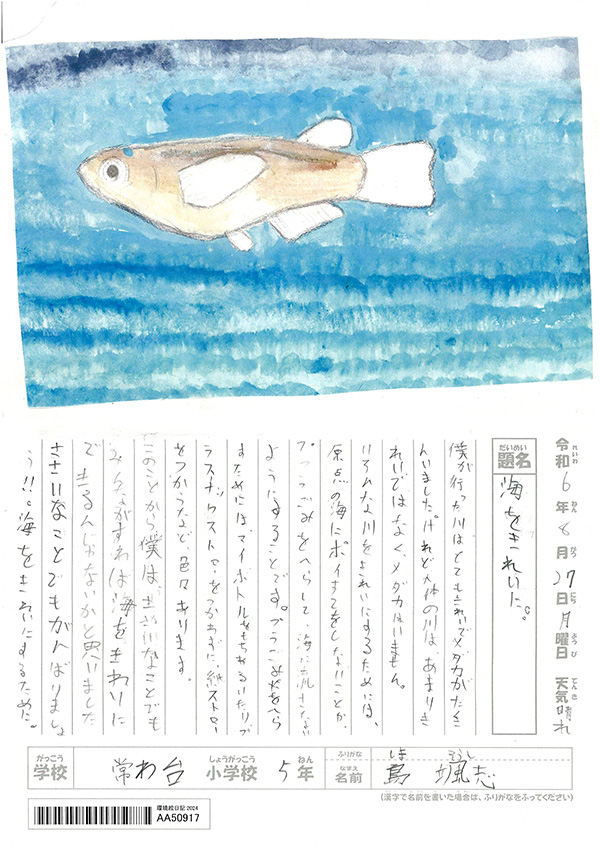 令和6年8月27日月曜日 天気晴れ
れいわ ねん がつ にち ようび てんき
だいめい
題名 海をきれいに。
僕が行った川はとてもきれいでメダカがたくさ
んいました。けれど大体の川は、あまりき
れいではなく、メダカはいません。
いろんな川をきれいにするためには、
原点の海にポイすてをしないことか、
プラごみをへらして、海に流さない
ようにすることです。プラごみをへら
すためには、マイボトルをもちあるいたりプ
ラスチックストローをつかわずに、紙ストロー
をつかうなど、色々あります。
このことから僕は、ささいなことでも
みんながすれば海をきれいに
できるんじゃないかと思いました
ささいなことでもがんばりましょ
う!!。海をきれいにするために。
がっこう しょうがっこう ねん ふりがな しま そうし
学校 常わ台 小学校 5年 なまえ 名前 島 颯志
(漢字で名前を書いた場合は、ふりがなをふってください)
環境絵日記2024
AA50917